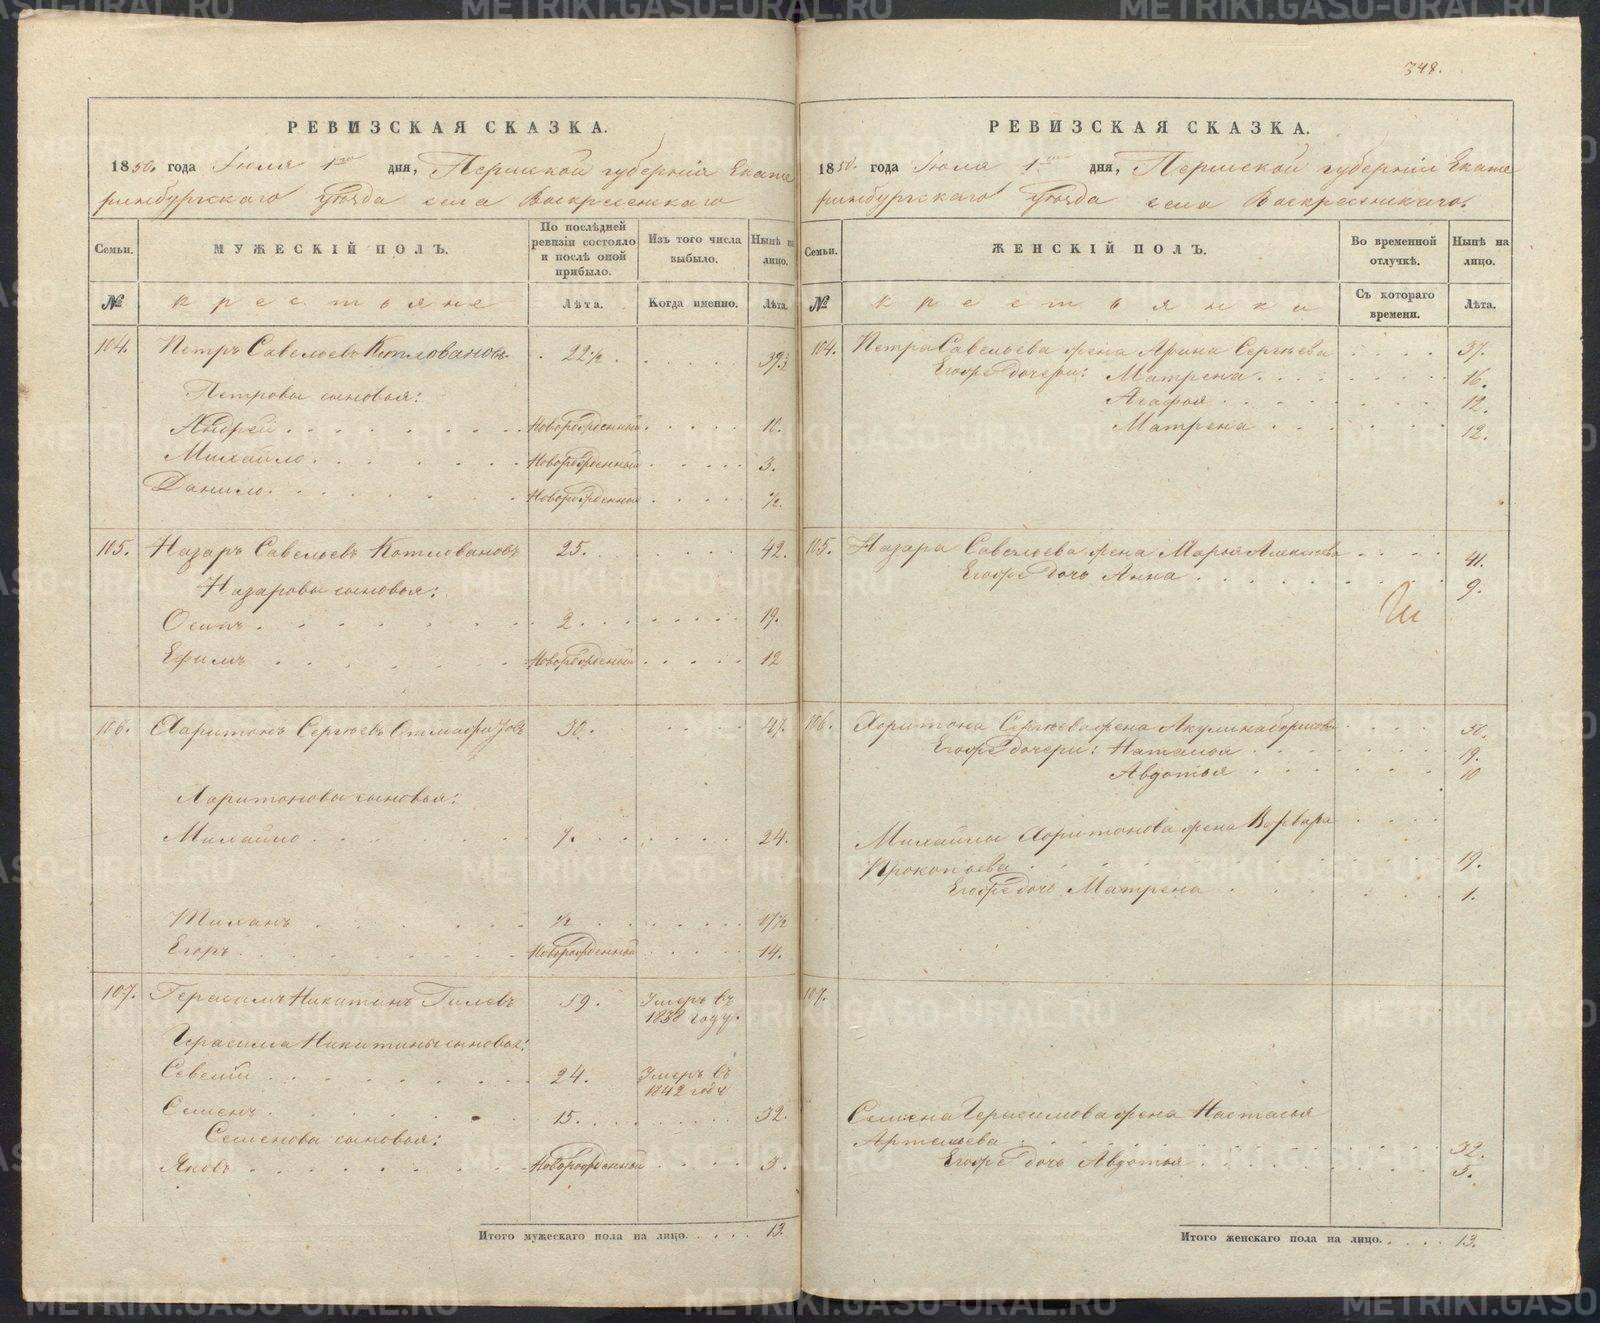 348.
РЕВИЗСКАЯ СКАЗКА.
1850. года Іюля 1го дня, Пермской губерніи Екате
ринбургскаго Уѣзда села Воскресенскаго
Семьи.
МУЖЕСКІЙ ПОЛЪ.
По послѣдней ревизіи состояло и послѣ оной прибыло.
Изъ того числа выбыло.
Нынѣ на лицо.
№
крестьяне
Лѣта.
Когда именно.
Лѣта.
104. Петръ Савельевъ Котловановъ. 22½ 39½
Петровы сыновья:
Андрей Новорожденный
Михайло Новорожденный 3.
Данило Новорожденный ½.
105. Назаръ Савельевъ Котловановъ 25. 42.
Назаровы сыновья:
Осипъ 2. 19.
Ефимъ Новорожденный 12
106. Харитонъ Сергѣевъ 30. 47.
Харитоновы сыновья:
Михайло 7. 24.
½ 17½
Егоръ Новорожденный 14.
107. Герасимъ Никитинъ Гилевъ 59. Умеръ въ
1838 году.
Герасима Никитины сыновья:
24. Умеръ въ
1842 году
Семенъ 15. 32.
Семеновы сыновья:
Яковъ Новорожденный 3.
Итого мужескаго пола на лицо. 13.
РЕВИЗСКАЯ СКАЗКА.
1850. года Іюля 1го дня, Пермской губерніи Екате
ринбургскаго Уѣзда села Воскресенскаго.
Семьи.
ЖЕНСКІЙ ПОЛЪ.
Во временной отлучкѣ.
Нынѣ на лицо.
№
крестьянки
Съ котораго времени.
Лѣта.
104. Петра Савельева жена Арина Сергѣева 37.
Егоже дочери: Матрена 16.
Агафья 12.
Матрена 12.
105. Назара Савельева жена Марья 41.
Егоже дочь Анна 9.
106. Харитона Сергѣева жена Акулина Борисова 50.
Егоже дочери: Наталья 19.
Авдотья 10
Михайлы Харитонова жена Варвара
Прокопьева 19.
Егоже дочь Матрена 1.
107.
Семена Герасимова жена Настасья
Артемьева 32.
Егоже дочь Авдотья 5.
Итого женскаго пола на лицо. 13.
METRIKI.GASO-URAL.RU